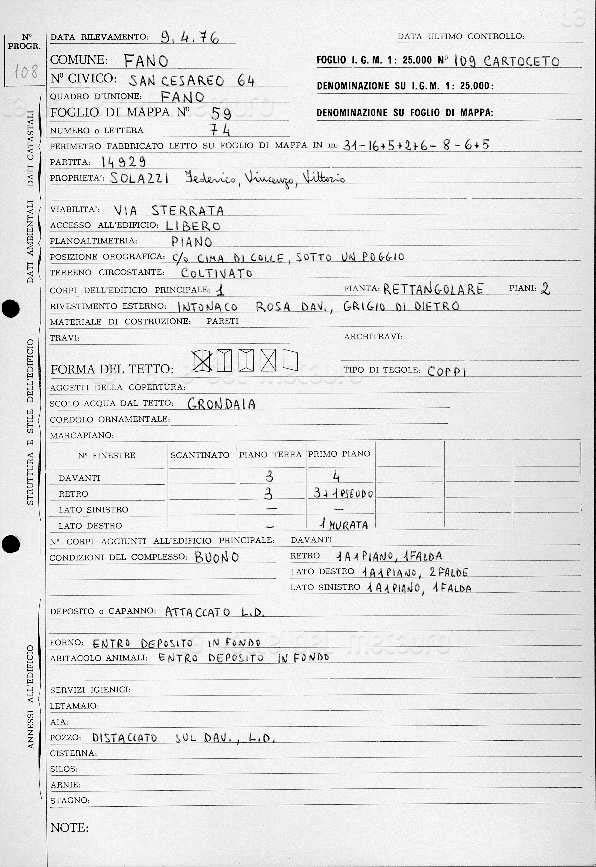 N° PROGR.
108
DATA RILEVAMENTO: 9.4.76 DATA ULTIMO CONTROLLO:
COMUNE: FANO FOGLIO I.G.M. 1:25.000 N° 109 CARTOCETO
N° CIVICO: SAN CESAREO 64 DENOMINAZIONE SU I.G.M. 1:25.000:
QUADRO D'UNIONE: FANO
FOGLIO DI MAPPA N° 59 DENOMINAZIONE SU FOGLIO DI MAPPA:
NUMERO o LETTERA 74
PERIMETRO FABBRICATO LETTO SU FOGLIO DI MAPPA IN m. 31-16+5+2+6-8-6+5
PARTITA: 14929
PROPRIETA': SOLAZZI Federico, Vincenzo, Vittorio
DATI CATASTALI
VIABILITA': VIA STERRATA
ACCESSO ALL'EDIFICIO: LIBERO
PLANOALTIMETRIA: PIANO
POSIZIONE OROGRAFICA: C/O CIMA DI COLLE, SOTTO UN POGGIO
TERRENO CIRCOSTANTE: COLTIVATO
DATI AMBIENTALI
CORPI DELL'EDIFICIO PRINCIPALE: 1 PIANTA: RETTANGOLARE PIANI: 2
RIVESTIMENTO ESTERNO: INTONACO ROSA DAV., GRIGIO DI DIETRO
MATERIALE DI COSTRUZIONE: PARETI
TRAVI: ARCHITRAVI:
FORMA DEL TETTO: TIPO DI TEGOLE: COPPI
AGGETTI DELLA COPERTURA:
SCOLO ACQUA DAL TETTO: GRONDAIA
CORDOLO ORNAMENTALE:
MARCAPIANO:
N° FINESTRE SCANTINATO PIANO TERRA PRIMO PIANO
DAVANTI 3 4
RETRO 3 3+1PSEUDO
LATO SINISTRO – –
LATO DESTRO – 1 MURATA
STRUTTURA E STILE DELL'EDIFICIO
N° CORPI AGGIUNTI ALL'EDIFICIO PRINCIPALE: DAVANTI
CONDIZIONI DEL COMPLESSO: BUONO RETRO 1A1PIANO, 1FALDA
LATO DESTRO 1A1PIANO, 2FALDE
LATO SINISTRO 1A1PIANO, 1FALDA
DEPOSITO o CAPANNO: ATTACCATO L.D.
FORNO: ENTRO DEPOSITO IN FONDO
ABITACOLO ANIMALI: ENTRO DEPOSITO IN FONDO
SERVIZI IGIENICI:
LETAMAIO:
AIA:
POZZO: DISTACCATO SUL DAV., L.D.
CISTERNA:
SILOS:
ARNIE:
STAGNO:
ANNESSI ALL'EDIFICIO
NOTE: